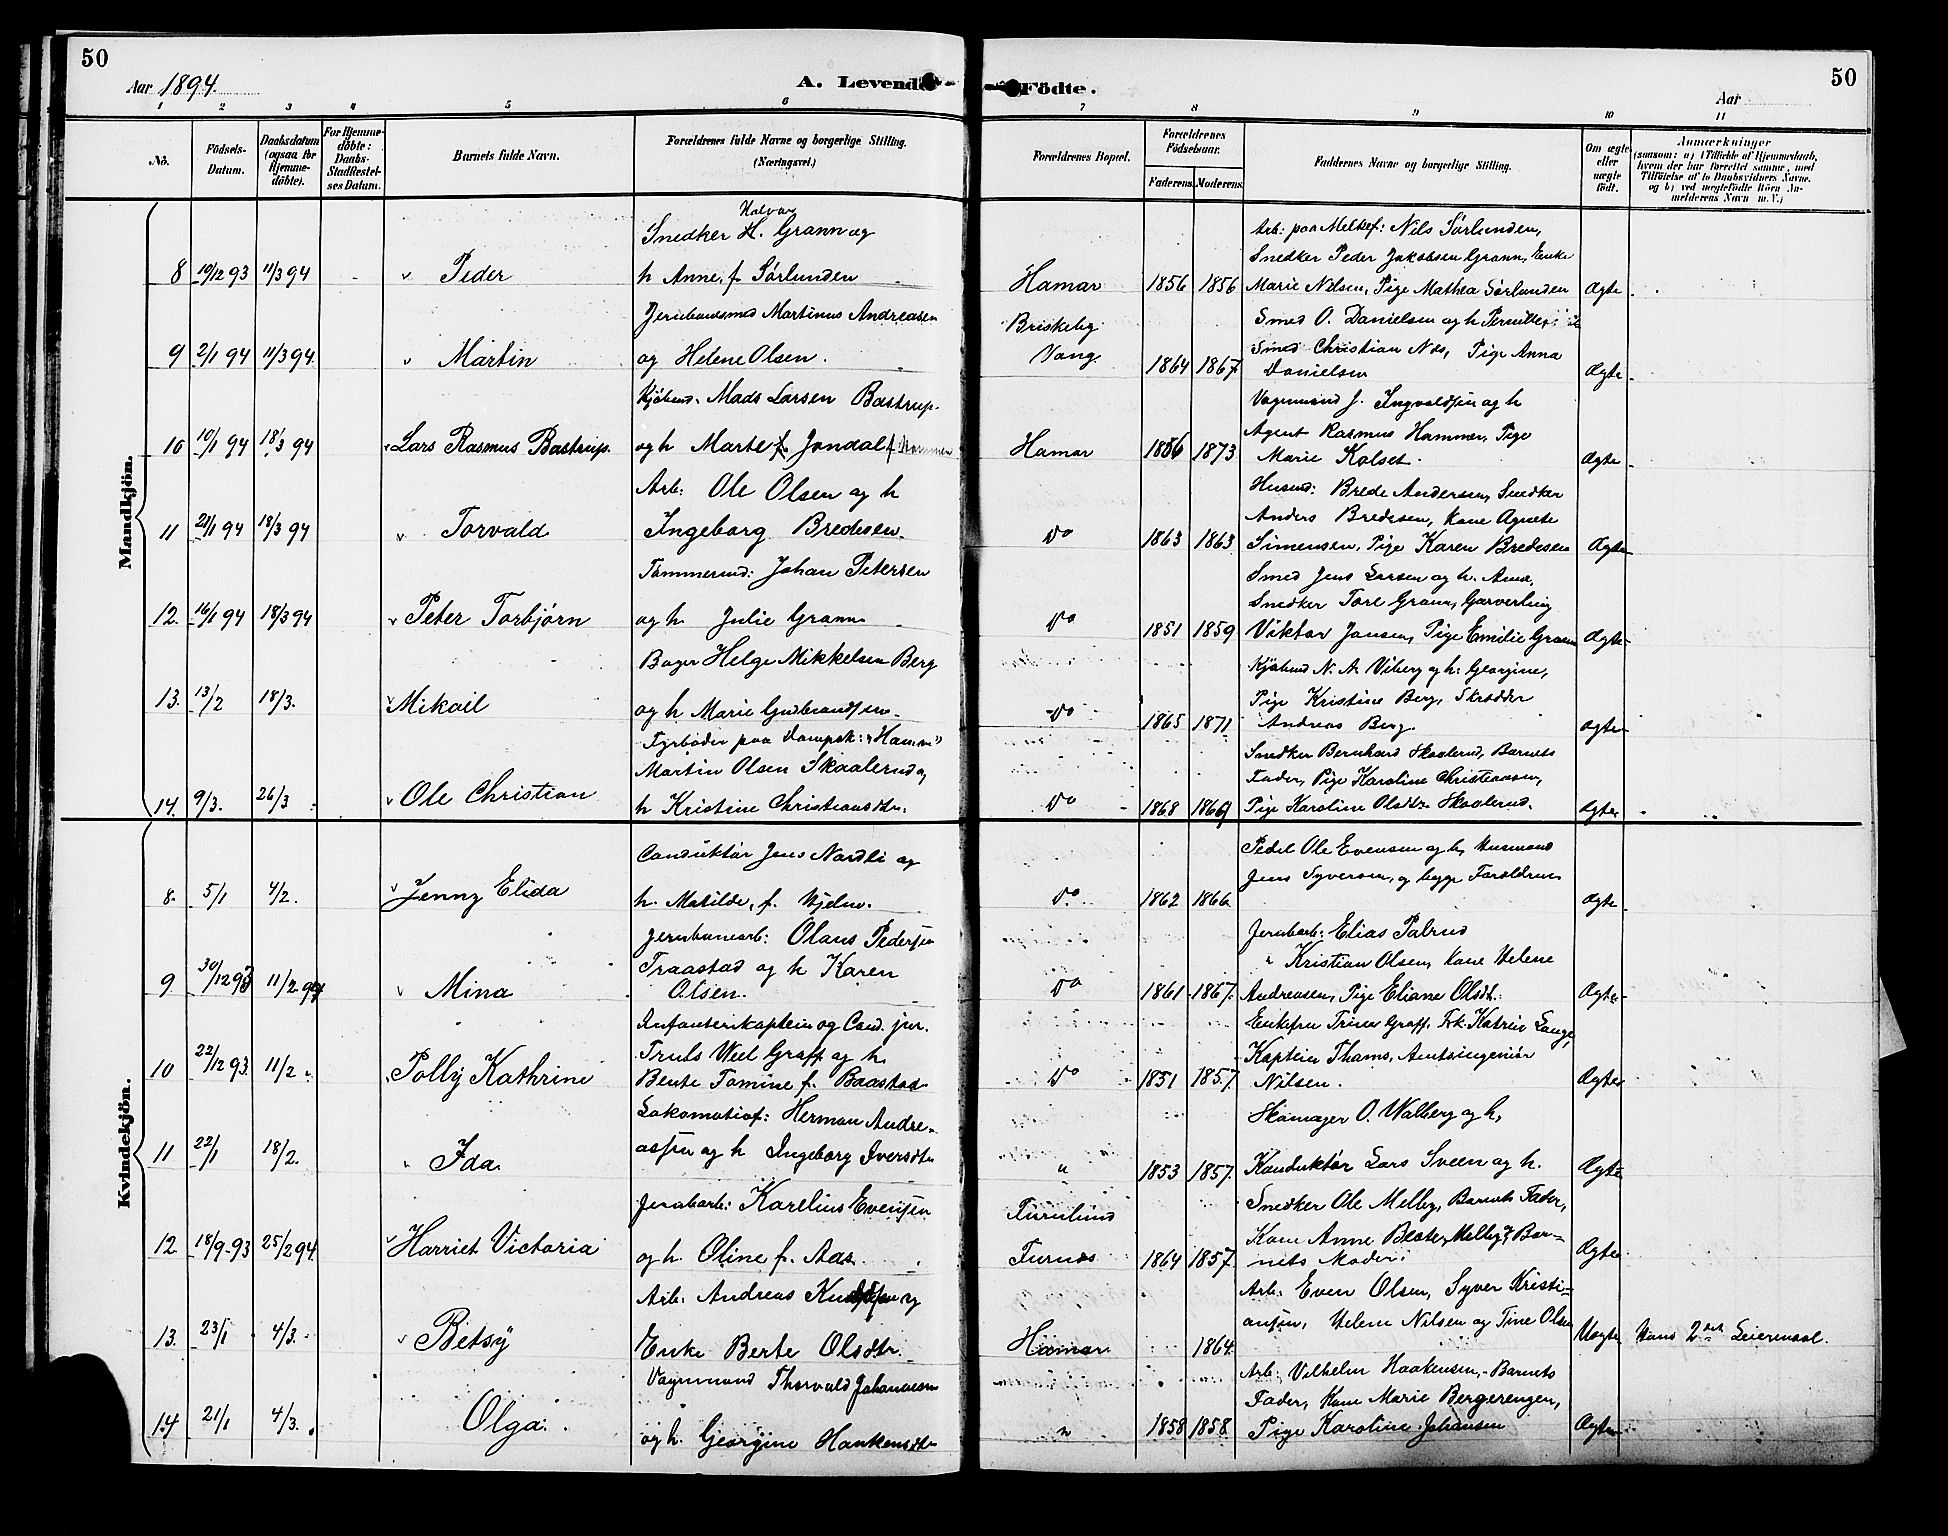 50
Aar 1894.
A. Levende
Födte.
50
Aar
1 2 3 4 5 6 7 8 9 10 11
No.
Födsels-Datum.
Daabsdatum (ogsaa for Hjemme-döbte).
For Hjemme-döbte: Daabs-Stadfestel-ses Datum.
Barnets fulde Navn.
Forældrenes fulde Navne og borgerlige Stilling. (Næringsvei.)
Forældrenes Bopæl.
Forældrenes Födselsaar.
Faderens. Moderens.
Faddernes Navne og borgerlige Stilling.
Om ægte eller uægte födt.
Anmærkninger
(saasom: a) i Tilfælde af Hjemmedaab, hvem der har forrettet samme, med Tilföielse af to Daabsvidners Navne, og b) ved uægtefödte Börn An-melderens Navn m. V.)
Mandkjön.
Halvor
Snedker H. Grann og
8 19/12 93 11/3 94 Peder h Anne, f. Sörlunden Hamar 1856 1856
Arb: paa Melkef: Nils Sörlunden,
Snedker Peder Jakobsen Grann, Enke
Marie Nilsen, Pige Mathea Sörlunden Ægte
Jernbanemed Martinus Andreasen
9 2/1 94 11/3 94 Martin og Helene Olsen. Briskeby Vang 1864 1867
Smed O. Danielsen og h Pernille,
Smed Christian Næs, Pige Anna
Danielsen Ægte
Kjöbmd. Mads Larsen Bastrup
10 10/1 94 18/3 94 Lars Rasmus Bastrup. og h Marte f. Jondal Hamar 1856 1873
Vognmand J. Ingvaldsen og h
Agent Rasmus Hammer, Pige
Marie Kolset. Ægte
Arb: Ole Olsen og h
11 21/1 94 18/3 94 Torvald Ingeborg Bredesen. Do 1863 1863
Husmd: Brede Andersen, Snedker
Anders Bredesen, Kone Agnete
Simensen, Pige Karen Bredesen Ægte
Tömmermd: Johan Petersen
12. 16/1 94 18/3 94 Peter Torbjörn og h Julie Grann Do 1851 1859
Smed Jens Larsen og h. Anna,
Snedker Tore Grann, Garverling
Viktor Jansen, Pige Emilie Grann Ægte
Bager Helge Mikkelsen Berg
13. 13/2 18/3. Mikail og h Marie Gudbrandsen. Do 1865 1871
Kjöbmd N. A. Viberg og h: Georgine,
Pige Kristine Berg, Skrædder
Andreas Berg. Ægte
Fyrböder paa Dampsk: "Hamar"
Martin Olsen Skaalerud og
14. 9/3. 26/3 Ole Christian h Kristine Christiansdtr. Do 1868 1869
Snedker Bernhard Skaalerud, Barnets
Fader, Pige Karoline Christiansen,
Pige Karoline Olsdtr Skaalerud. Ægte
Kvindekjön.
Conduktör Jens Nordli og
8. 5/1 4/2. Jenny Elida h. Matilde, f. Hjelm. Do 1862 1866
Pedel Ole Evensen og h, Husmand
Jens Syversen, og begge Forældrene Ægte
Jernbanearb: Olaus Pedersen
Traastad og h Karen
Olsen.
9. 30/12 93 11/2 94 Mina Do 1861 1867.
Jernbarb: Elias Palrud
" Kristian Olsen, Kone Helene
Andreasen, Pige Eliane Olsdt. Ægte
Infanterikaptein og Cand. jur.
Truls Wiel Graff og h.
10 22/12 93. 11/2 Polly Kathrine Bente Tomine f. Baastad Do 1851 1857.
Enkefru Trine Graff, Frk. Katrine Lange,
Kaptein Thams, Amtsingeniör
Nilsen. Ægte
Lokomotivf: Herman Andre-
11 22/1 18/2. Ida assen og h Ingeborg Iversdtr " 1853 1857.
Skomager O. Walberg og h,
Konduktör Lars Sveen og h. Ægte
Jernbarb: Karelius Evensen
12 18/9 93 25/2 94. Harriet Victoria og h Oline f. Aas Furulund Furnes 1864 1857.
Snedker Ole Melby, Barnets Fader,
Kone Anne Beate Melby, Bar-
nets Moder. Ægte
Arb: Andreas Knudsen og
13. 23/1 4/3. Betsy Enke Berte Olsdtr. Hamar 1864.
Arb: Even Olsen, Syver Kristi-
ansen, Helene Nilsen og Tine Olsen Uægte Hans 2det Leiermaal.
Vognmand Thorvald Johannesen
14 21/1 4/3. Olga. og h. Georgine Haakensdtr " 1858 1858.
Arb: Vilhelm Haakensen, Barnets
Fader, Kone Marie Bergerengen,
Pige Karoline Johansen Ægte